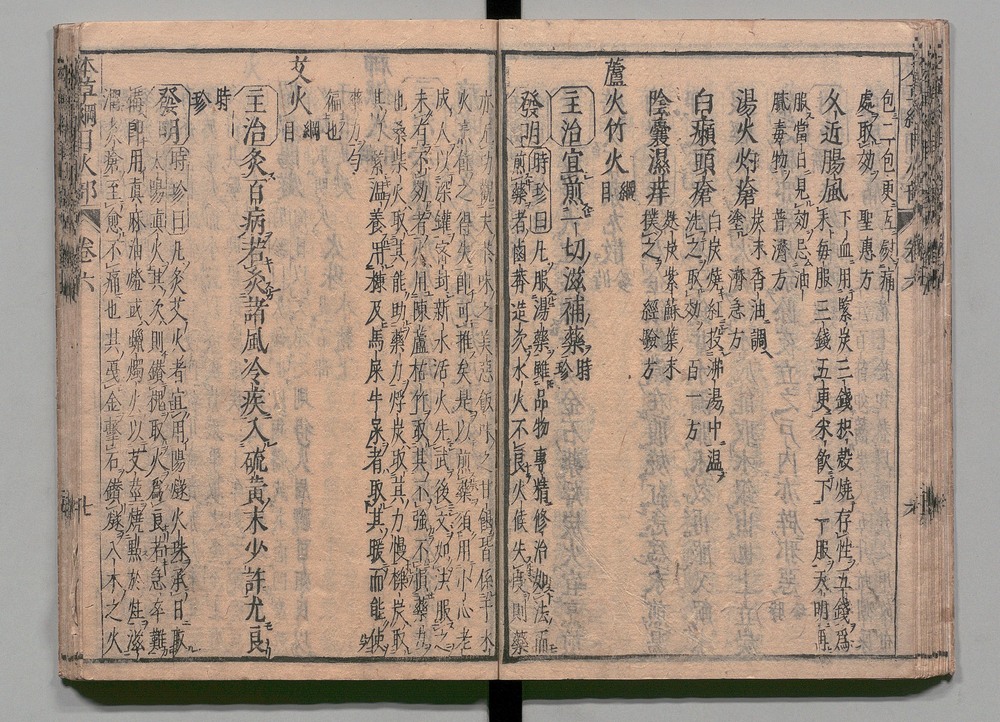 包一二包更互熨痛
處取効 聖惠方
久近腸風 下血用緊炭三錢枳殼燒存性五錢爲
末每服三錢五更米飮下一服天明再
服當日見効忌油
膩毒物 普濟方
湯火灼瘡 炭末香油調
塗 濟急方
白癩頭瘡 白炭燒紅投沸湯中溫
洗之取効 百一方
陰囊濕痒 麩炭紫蘇葉末
撲之 經驗方
蘆火竹火 綱目
主治宜煎一切滋補藥 時珍
發明 時珍曰凡服湯藥雖品物專精修治如法而
煎藥者鹵莽造次水火不良火候失度則藥
亦無功觀夫茶味之美惡飯味之甘餲皆係于水
火烹飪之得失卽可推矣是以煎藥須用小心老
成人以深罐密封新水活火先武後文如法服之
未有不効者火用陳蘆枯竹取其不強不損藥力
也桑柴火取其能助藥力烰炭取其力慢櫟炭取
其力緊溫養用糠及馬屎牛屎者取其暖而能使
藥力勻
徧也
艾火 綱目
主治灸百病若灸諸風冷疾入硫黄末少許尤良
時珍
發明 時珍曰凡灸艾火者宜用陽燧火珠承日取
太陽眞火其次則鑽槐取火爲良若急卒難
備卽用眞麻油燈或蠟燭火以艾莖燒點於炷滋
潤灸瘡至愈不痛也其戛金擊石鑽燧入木之火
本草綱目火部 卷六 廿